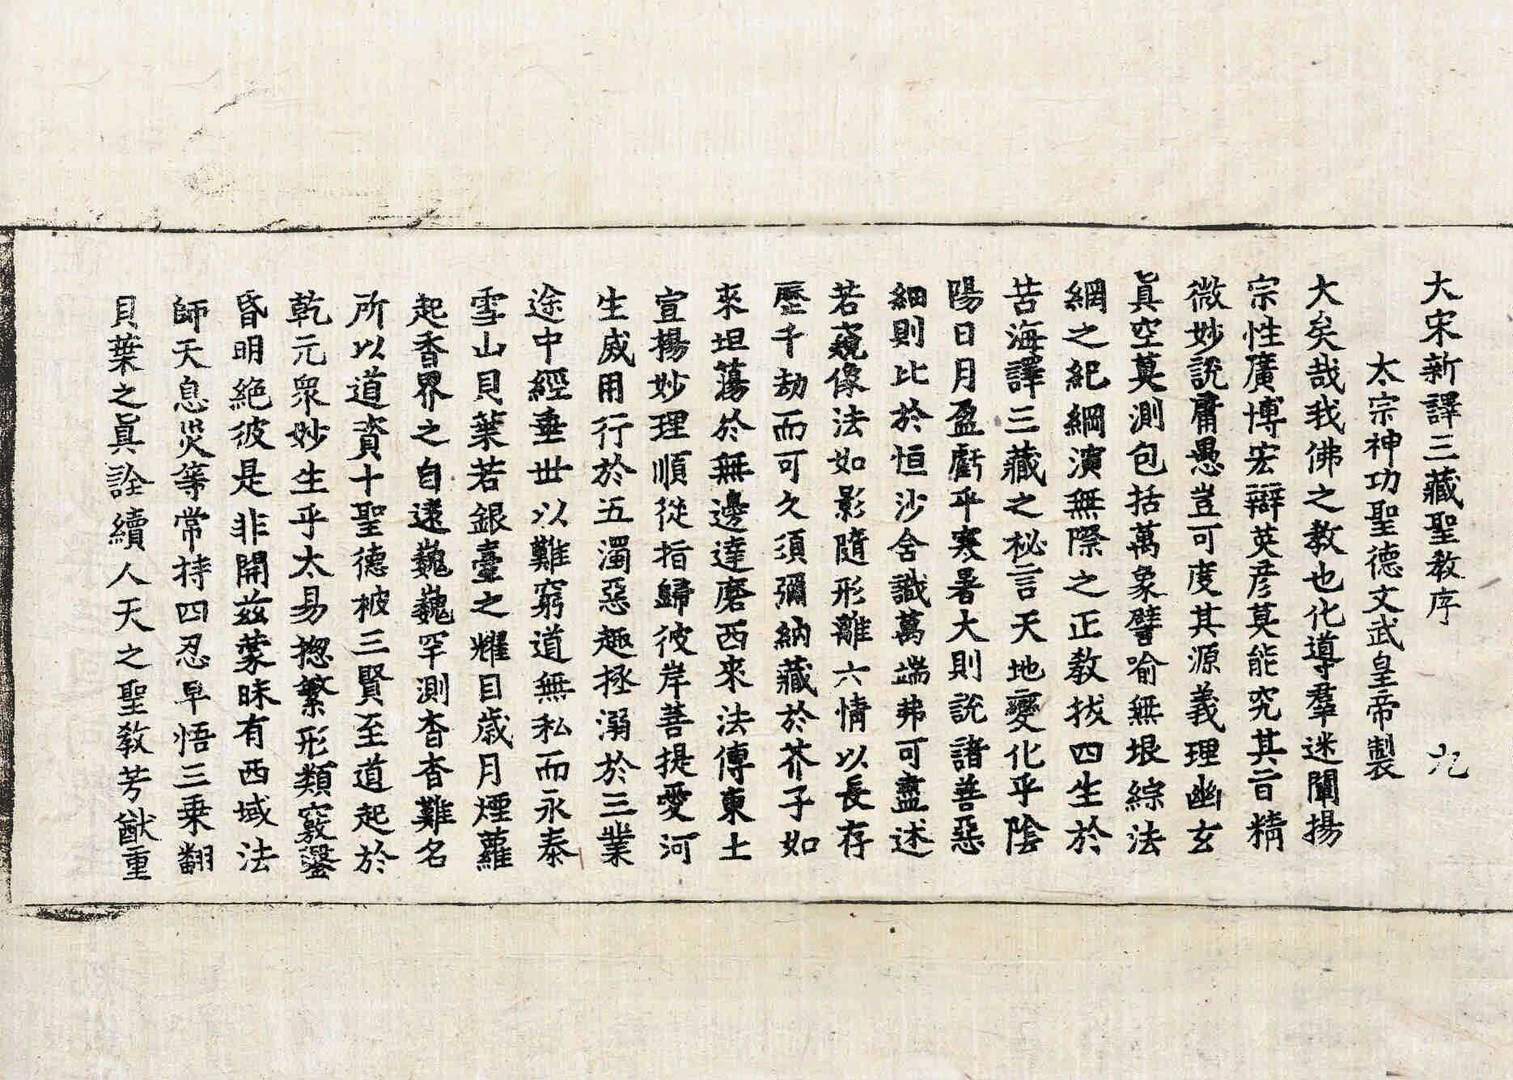 大宋新譯三藏聖教序　九
太宗神功聖德文武皇帝製
大矣哉我佛之教也化導羣迷闡揚
宗性廣博宏辯英彥莫能究其旨精
微妙說庸愚豈可度其源義理幽玄
眞空莫測包括萬象譬喻無垠綜法
網之紀綱演無際之正教拔四生於
苦海譯三藏之秘言天地變化乎陰
陽日月盈虧乎寒暑大則說諸善惡
細則比於恒沙含識萬端弗可盡述
若窺像法如影隨形離六情以長存
歷千劫而可久須彌納藏於芥子如
來坦蕩於無邊達磨西來法傳東土
宣揚妙理順從指歸彼岸菩提愛河
生滅用行於五濁惡趣拯溺於三業
途中經垂世以難窮道無私而永泰
雪山貝葉若銀臺之耀目歲月煙蘿
起香界之自遠巍巍罕測杳杳難名
所以道資十聖德被三賢至道起於
乾元衆妙生乎太易揔繁形類竅鑿
昏明絶彼是非開茲蒙昧有西域法
師天息災等常持四忍早悟三乘翻
貝葉之眞詮續人天之聖教芳猷重